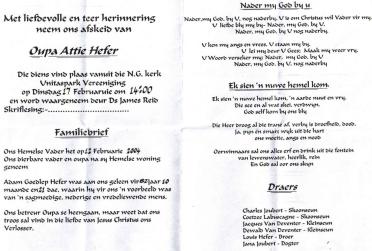 Met liefdevolle en teer herinnering
neem ons afskeid van
Oupa Attie Hefer
Die diens vind plaas vanuit die N.G. kerk
Unitaspark Vereeniging
op Dinsdag 17 Februarie om 14h00
en word waargeneem deur Ds James Reid
Skriflesing:-
Familiebrief
Ons Hemelse Vader het op 12 Februarie 2004
Ons dierbare vader en oupa na sy Hemelse woning
geneem
Adam Goeliep Hefer was aan ons geleen vir jaar 10
maande en dae, waarin hy vir ons 'n voorbeeld was
van 'n sagmoedige, nederige en vredeliewende mens.
Ons betreur Oupa se heengaan, maar weet dat ons
troos sal vind in die liefde van Jesus Christus ons
Verlosser.
Nader my God by u
Nader, my God, by U, nog naderby. U is om Christus wil Vader vir my.
U liefde bly my by- Nader, my God, by U.
Nader, my God, by U, nog naderby
U ken my angs en vrees. U staan my by.
U lei my deur U Gees. Maak my weer vry.
U Woord verseker my: Nader, my God, by U.
Nader, my God, by U, nog naderby
Ek sien 'n nuwe hemel kom.
Ek sien 'n nuwe hemel kom, 'n aarde nuut en vry.
Die see en al wat skei, verdwyn.
God self kom by ons bly
Die Heer droog al die trane af, verby is droefheid, dood.
Ja, pyn en smart wyk uit die hart
ons moeite, angs en nood
Oorwinnaars sal ons alles erf en drink uit die fontein
van lewenswater, heerlik, rein
En God sal oor ons skyn
Draers
Charles Joubert - Skoonseun
Coetzee Labuscagne - Skoonseun
Jacques Van Deventer - Kleinseun
Dewald Van Deventer - Kleinseun
Louis Hefer - Broer
Jana Joubert - Dogter